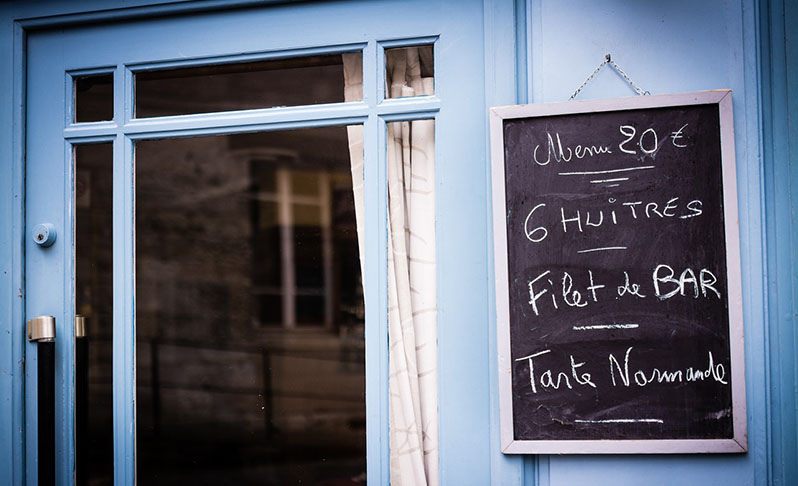 Menu 20 €
6 HUiTRES
Filet de BAR
Tarte Normande